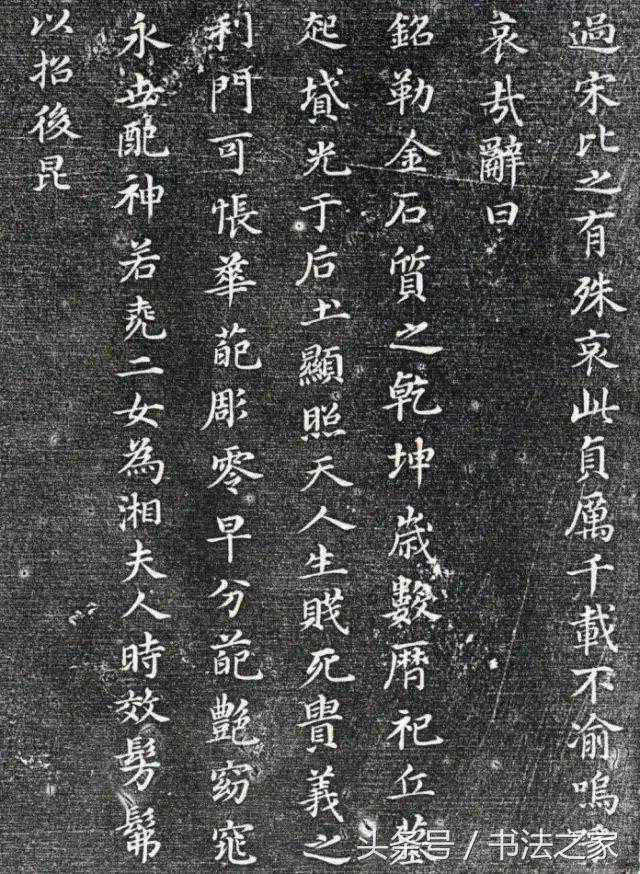 過宋比之有殊哀此貞厲千載不渝嗚
哀哉辭曰
銘勒金石質之乾坤歲數曆祀丘墓
起墳光于后土顯照天人生賤死貴義之
利門可悵華葩彫零早分葩艷窈窕
永世配神若堯二女為湘夫人時效髣髴
以招後昆
头条号 / 书法之家